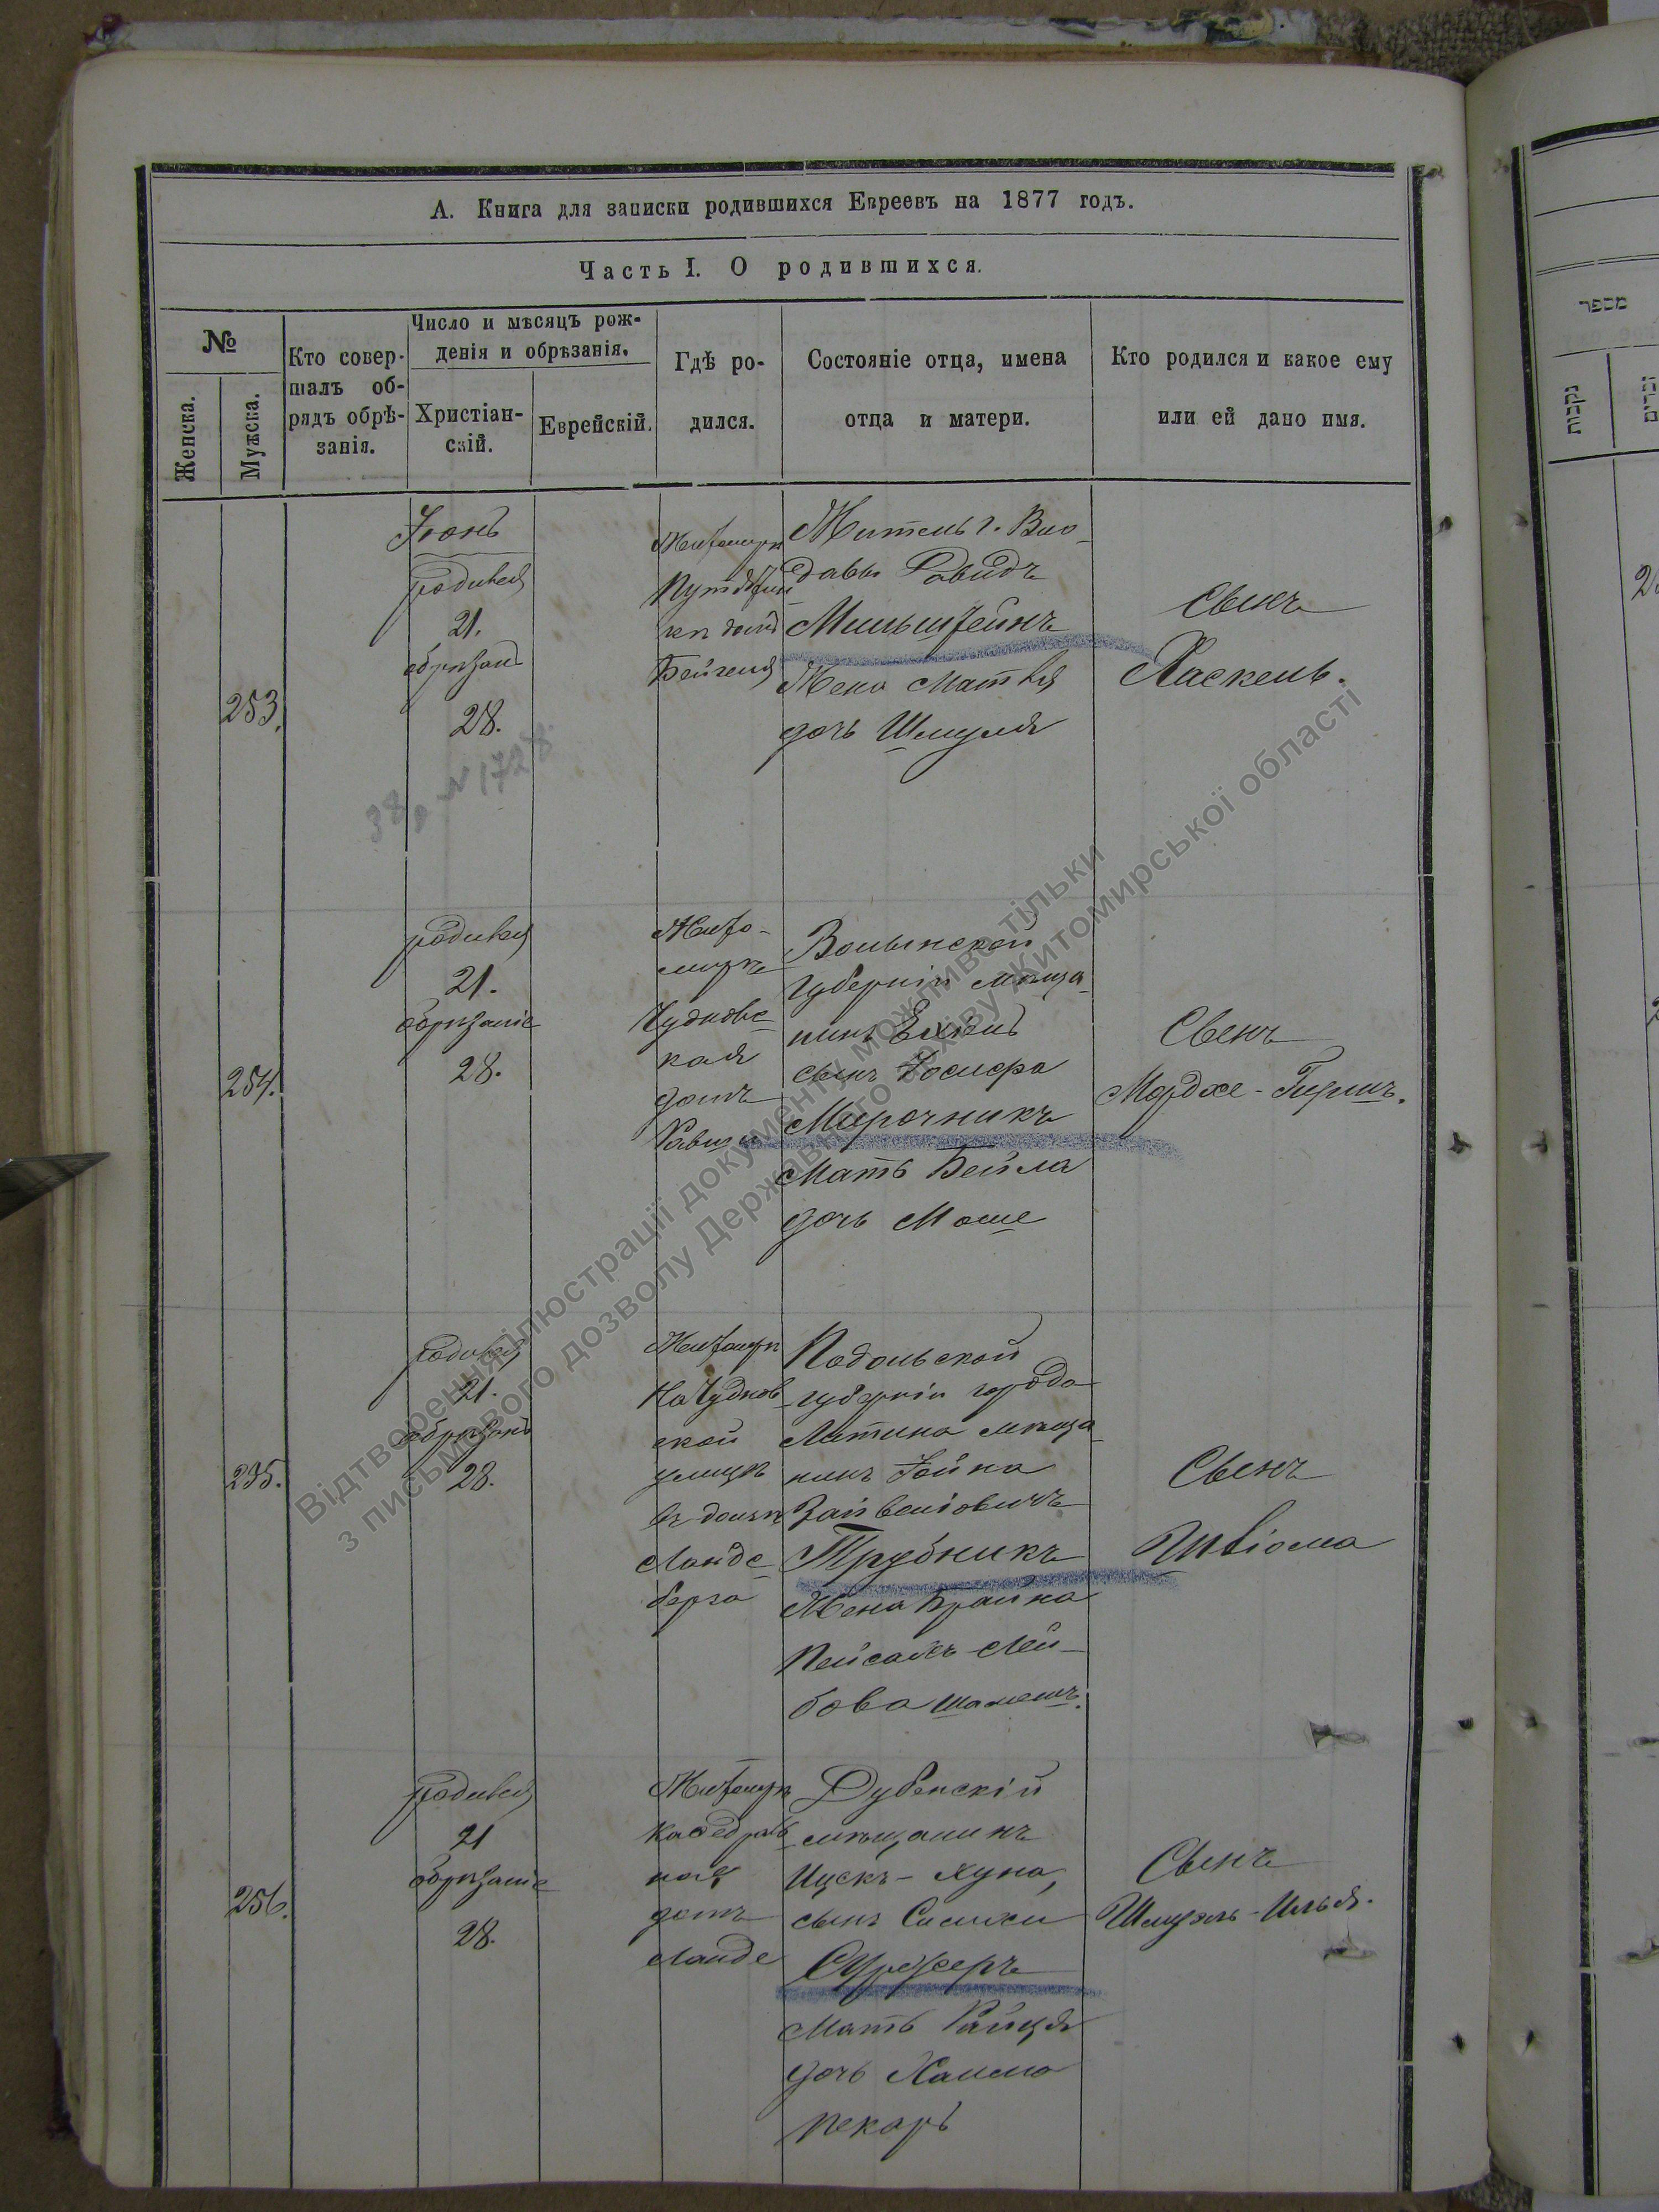 А. Книга для записки родившихся Евреевъ на 1877 годъ.
Часть I. О родившихся.
№
Женска.
Мужска.
Кто совер-
шалъ об-
рядъ обрѣ-
занія.
Число и мѣсяцъ рож-
денія и обрѣзанія.
Христіан-
скій.
Еврейскій.
Гдѣ ро-
дился.
Состояніе отца, имена
отца и матери.
Кто родился и какое ему
или ей дано имя.
253.
Іюнь
родился
21.
обрѣзанъ
28.
Житомиръ
домѣ
Житель г. Вло-
давы Давидъ
Мильштейнъ
Жена Матля
дочь Шмуля
Сынъ
Хаскель.
№ 1728
254.
родился
21.
обрѣзаніе
28.
Жито-
миръ
Чудновс-
кая
домъ
Волынской
губерніи мѣща-
нинъ Ехіель
сынъ Іосифа
Мирочникъ
Мать Бейла
дочь Моше
Сынъ
Мордхе-Гершъ.
235.
родился
21.
обрѣзанъ
28.
Житомиръ
На Чуднов-
ской
улицѣ
въ домѣ
Ландс-
берга
Подольской
губерніи города
Литина мѣща-
нинъ Іойна
Зайвеліовичъ
Трубникъ
Жена Брайна
Пейсахъ-Лей-
бова
Сынъ
256.
родился
21
обрѣзаніе
28.
Житомиръ
Кафедраль
ная
домъ
Ланде
Дубенскій
мѣщанинъ
Ицекъ-Хуна,
сынъ Симхи
Мать Райця
дочь Хаима
пекарь
Сынъ
Шмуэль-Илья.
מספר
נקבות
זכרים
Відтворення ілюстрації документу можливо тільки
з письмового дозволу Державного архіву Житомирської області